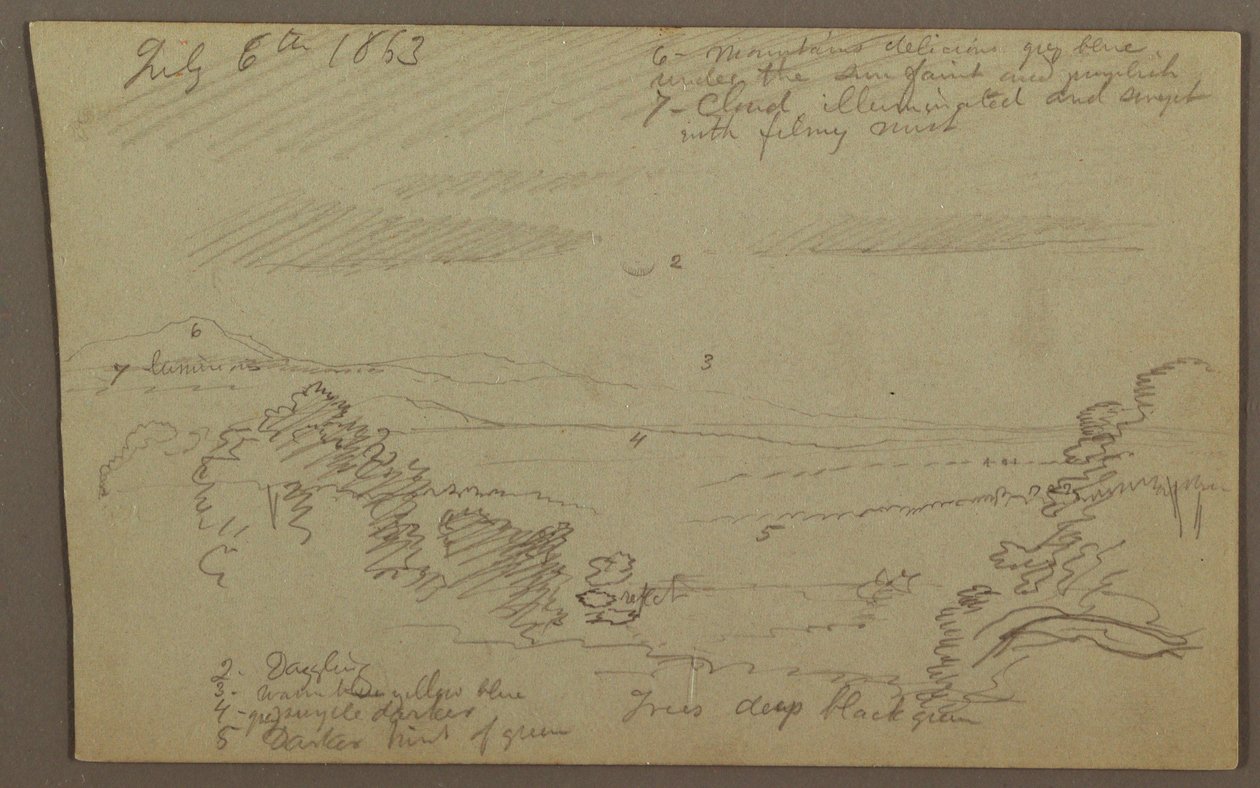 July 6th 1863
6 - Mountains delicious grey blue
under the sun faint and purplish
7 - Cloud illuminated and swept
with filmy mist
2
6
7 luminous
3
4
5
reflect
2 - Dazzling
3 - warm yellow blue
4 - grey purple darker
5 Darker hint of green
Trees deep black green